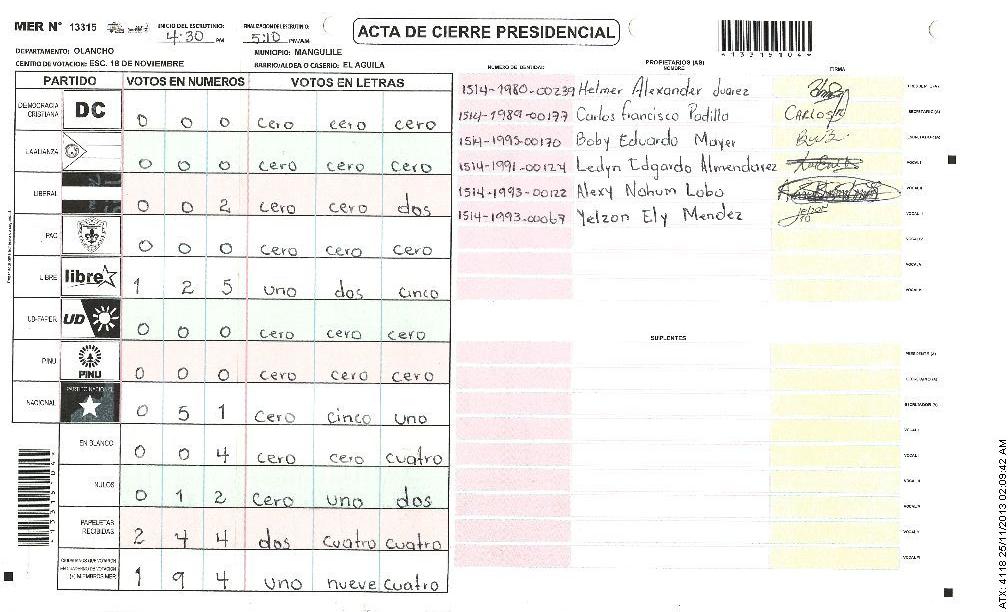 MER N° 13315 INICIO DEL ESCRUTINIO: 4:30 PM FINALIZACION ESCRUTINIO: 5:10 PM/AM
ACTA DE CIERRE PRESIDENCIAL
DEPARTAMENTO: OLANCHO MUNICIPIO: MANGULILE
CENTRO DE VOTACION: ESC. 18 DE NOVIEMBRE BARRIO/ALDEA O CASERIO: EL AGUILA
PARTIDO VOTOS EN NUMEROS VOTOS EN LETRAS
DEMOCRACIA CRISTIANA DC 0 0 0 cero cero cero
LA ALIANZA 0 0 0 cero cero cero
LIBERAL 0 0 2 cero cero dos
PAC 0 0 0 cero cero cero
LIBRE libre 1 2 5 uno dos cinco
UD-FAPER UD 0 0 0 cero cero cero
PINU PINU 0 0 0 cero cero cero
NACIONAL PARTIDO NACIONAL 0 5 1 cero cinco uno
EN BLANCO 0 0 4 cero cero cuatro
NULOS 0 1 2 cero uno dos
PAPELETAS RECIBIDAS 2 4 4 dos cuatro cuatro
CIUDADANOS QUE VOTARON EN CUADERNO DE VOTACION (+) MIEMBROS MER 1 9 4 uno nueve cuatro
*13315104*
NUMERO DE IDENTIDAD PROPIETARIOS (AS) NOMBRE FIRMA
1514-1980-00239 Helmer Alexander Juarez PRESIDENTE (A)
1514-1989-00177 Carlos Francisco Padilla CARLOS SECRETARIO (A)
1514-1995-00170 Boby Eduardo Mayer ESCRUTADOR (A)
1514-1991-00124 Ledyn Edgardo Almendarez VOCAL I
1514-1993-00122 Alexy Nahum Lobo VOCAL II
1514-1993-00067 Yelzon Ely Mendez VOCAL III
VOCAL IV
VOCAL V
VOCAL VI
SUPLENTES
PRESIDENTE (A)
SECRETARIO (A)
ESCRUTADOR (A)
VOCAL I
VOCAL II
VOCAL III
VOCAL IV
VOCAL V
VOCAL VI
*13315104*
ATX: 4118 25/11/2013 02:09:42 AM